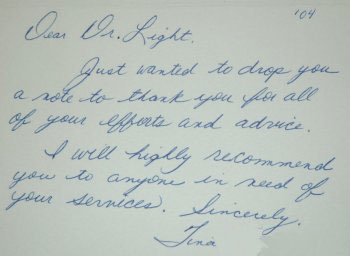 '04
Dear Dr. Light.
Just wanted to drop you
a note to thank you for all
of your efforts and advice.
I will highly recommend
you to anyone in need of
your services. Sincerely.
Tina